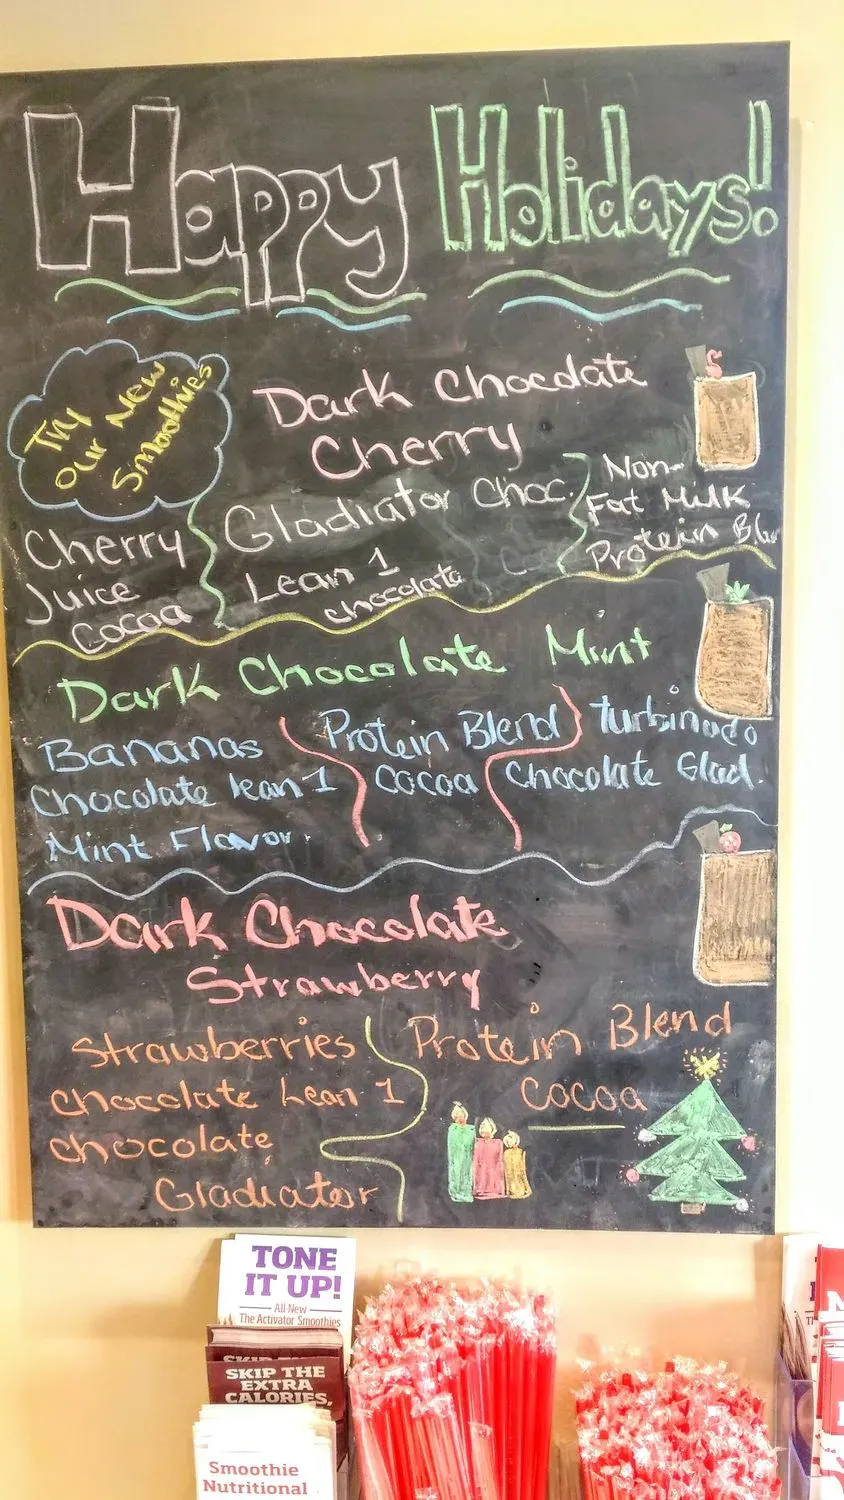 Happy Holidays!
Try
our New
Smoothies
Dark Chocolate
Cherry
Cherry
Juice
Cocoa
Gladiator Choc.
Lean 1
chocolate
Non-
Fat Milk
Protein Blen
Dark Chocolate Mint
Bananas
Chocolate lean 1
Mint Flavor
Protein Blend
Cocoa
turbinado
Chocolate Glad.
Dark Chocolate
Strawberry
Strawberries
Chocolate Lean 1
chocolate
Gladiator
Protein Blend
Cocoa
TONE
IT UP!
All-New
The Activator Smoothies
SKIP THE
EXTRA
CALORIES.
Smoothie
Nutritional